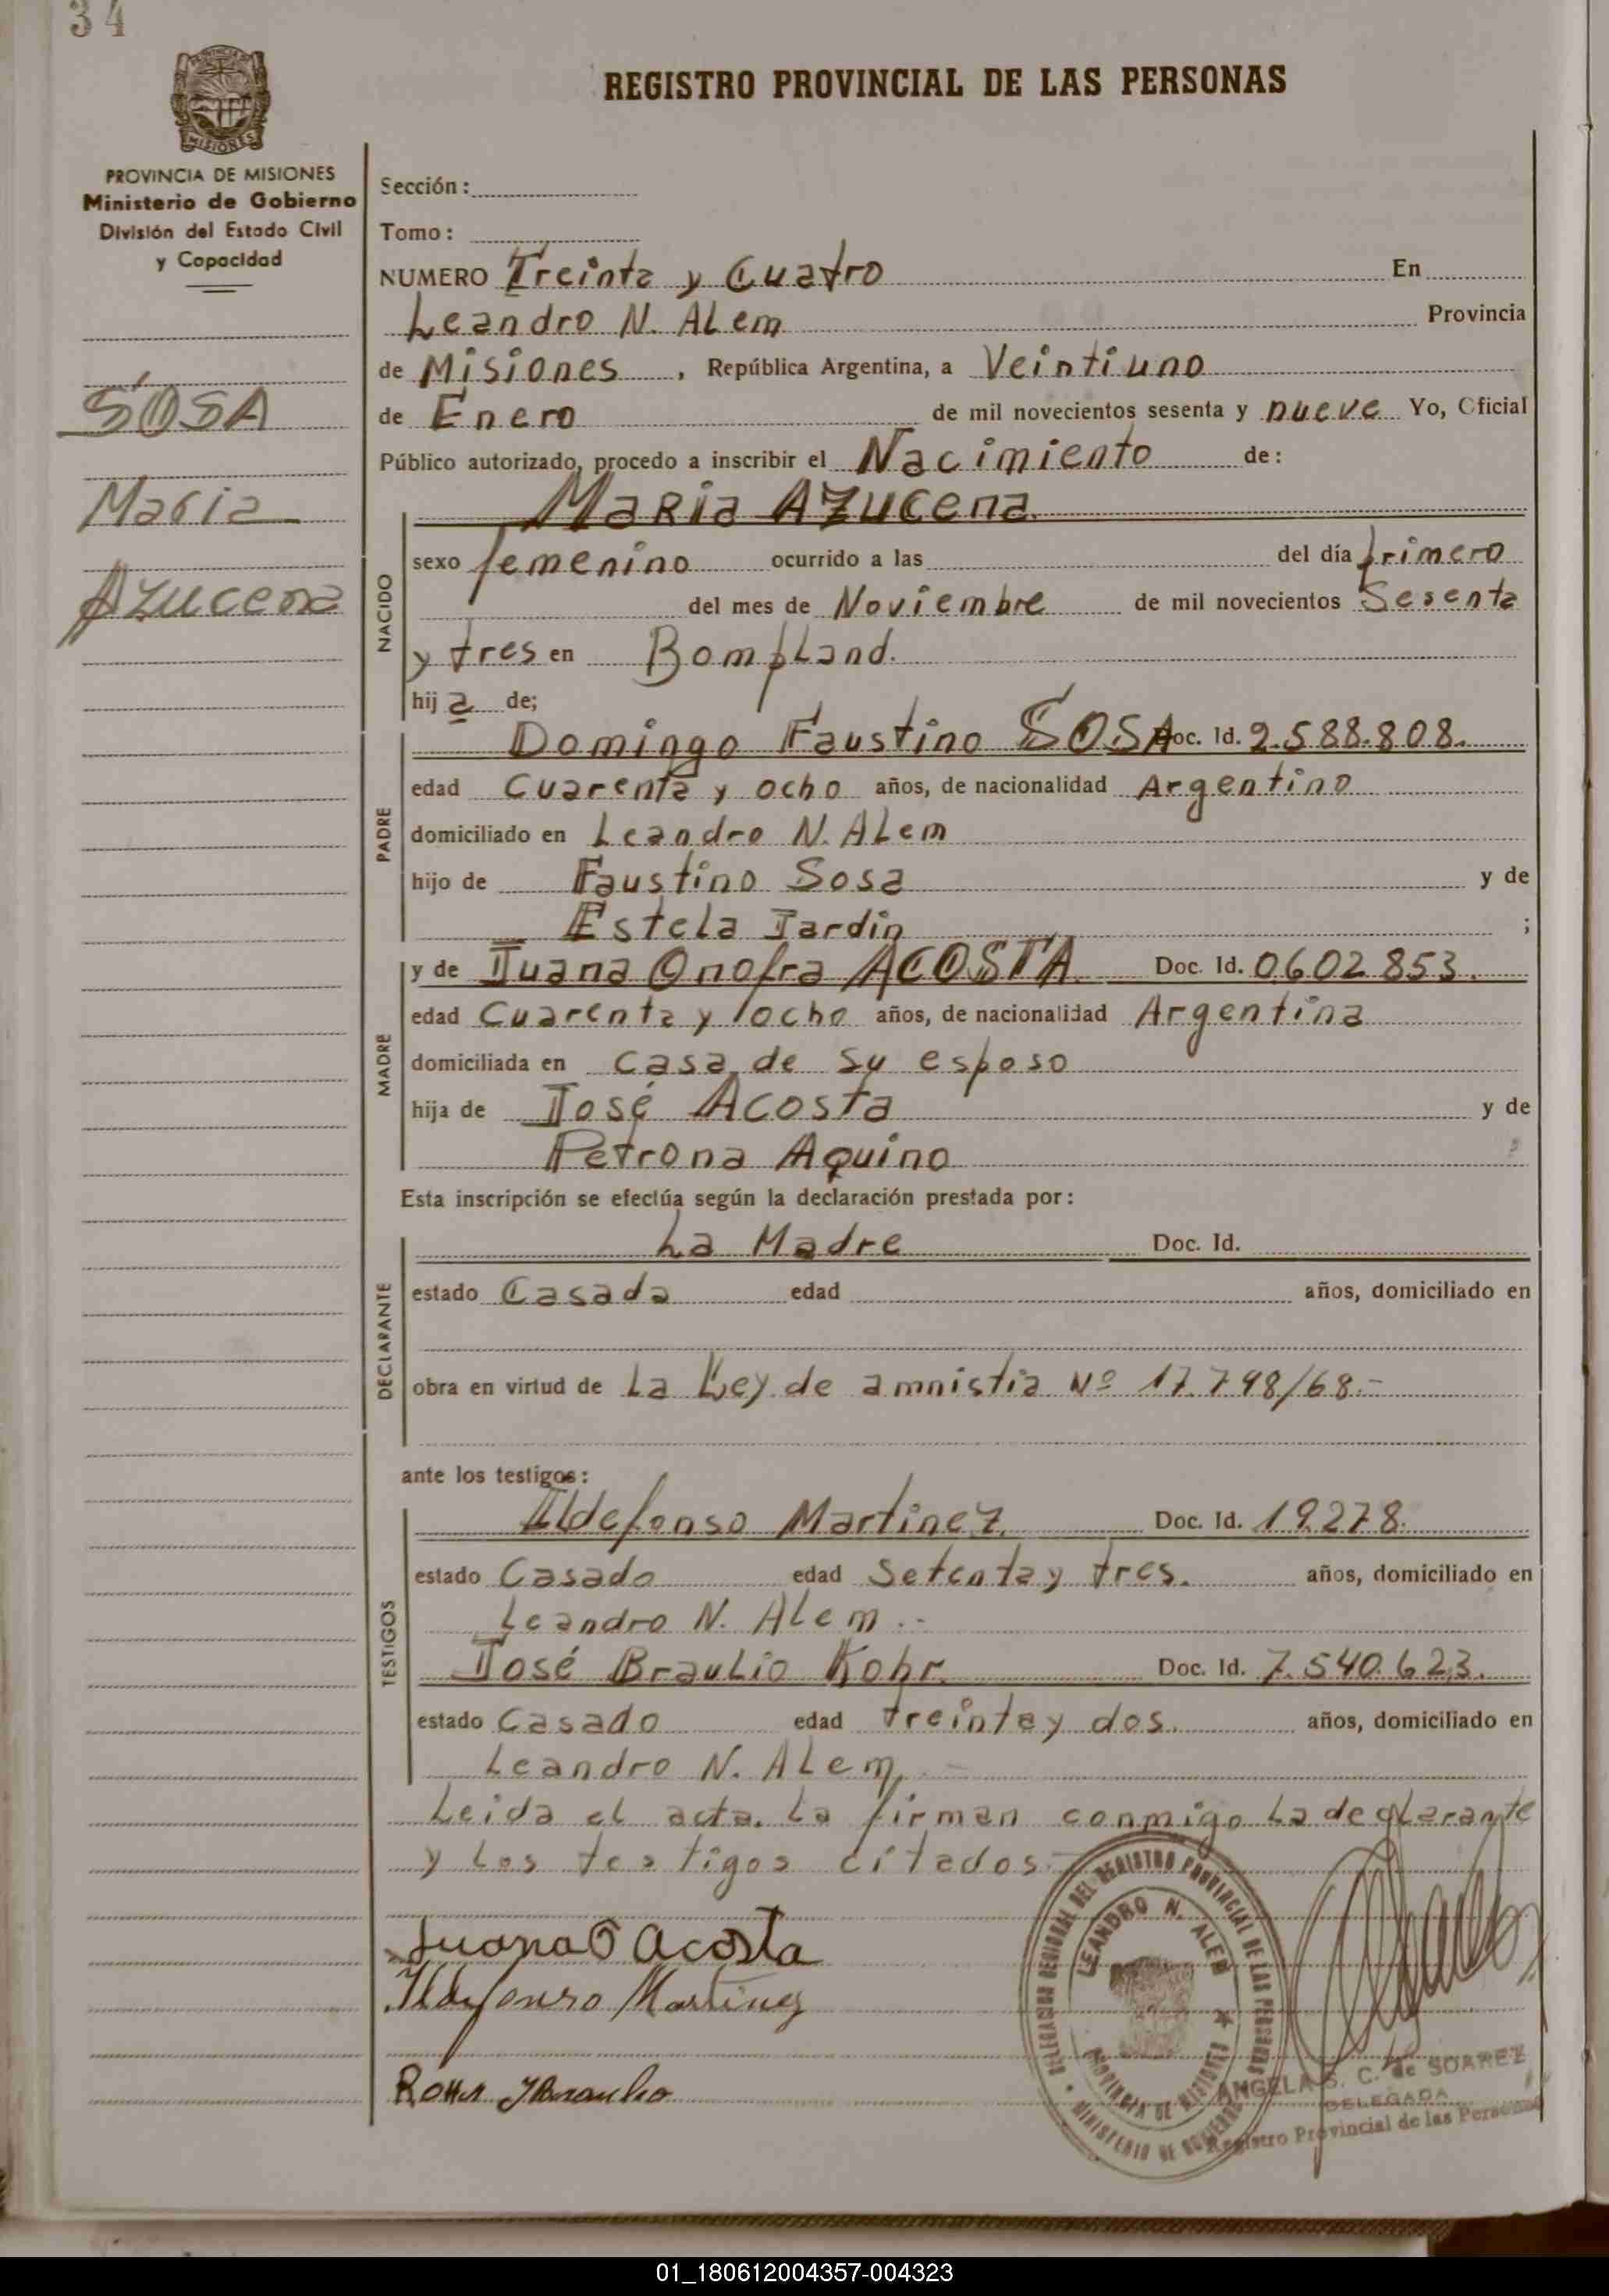 34
PROVINCIA DE MISIONES
Ministerio de Gobierno
División del Estado Civil
y Capacidad
SOSA
Maria
Azucena
REGISTRO PROVINCIAL DE LAS PERSONAS
Sección:
Tomo:
NUMERO Treinta y Cuatro En
Leandro N. Alem Provincia
de Misiones, República Argentina, a Veintiuno
de Enero de mil novecientos sesenta y nueve Yo, Oficial
Público autorizado, procedo a inscribir el Nacimiento de:
Maria Azucena
NACIDO
sexo femenino ocurrido a las del día primero
del mes de Noviembre de mil novecientos Sesenta
y tres en Bompland.
hija de;
PADRE
Domingo Faustino SOSA Doc. Id. 2.588.808.
edad Cuarenta y ocho años, de nacionalidad Argentino
domiciliado en Leandro N. Alem
hijo de Faustino Sosa y de
Estela Jardin ;
MADRE
y de Juana Onofra ACOSTA Doc. Id. 0602853.
edad Cuarenta y ocho años, de nacionalidad Argentina
domiciliada en casa de su esposo
hija de José Acosta y de
Petrona Aquino
Esta inscripción se efectúa según la declaración prestada por:
DECLARANTE
La Madre Doc. Id.
estado Casada edad años, domiciliado en
obra en virtud de La Ley de amnistia Nº 17.798/68.-
ante los testigos:
TESTIGOS
Ildefonso Martinez Doc. Id. 19.278.
estado Casado edad Setenta y tres. años, domiciliado en
Leandro N. Alem.-
José Braulio Rohr Doc. Id. 7.540.623.
estado Casado edad treinta y dos. años, domiciliado en
Leandro N. Alem.-
Leida el acta. La firman conmigo La declarante
y Los testigos citados.-
Juana O Acosta
Ildefonso Martinez
Rohr J Braulio
DELEGACION REGIONAL DEL REGISTRO PROVINCIAL DE LAS PERSONAS
LEANDRO N. ALEM
PROVINCIA DE MISIONES
MINISTERIO DE GOBIERNO
ANGELA S. C. de SOAREZ
DELEGADA
Registro Provincial de las Personas
01_180612004357-004323